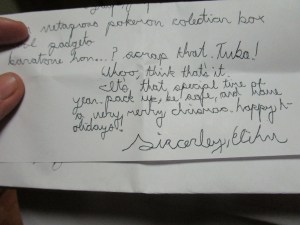 metagross pokemon colection box
gadgets
hon...? scrap that. Tuba!
Whoo, think that's it.
Its that special time of
year. pack up, be safe, and have
a very, merry chrismas. happy h-
olidays!